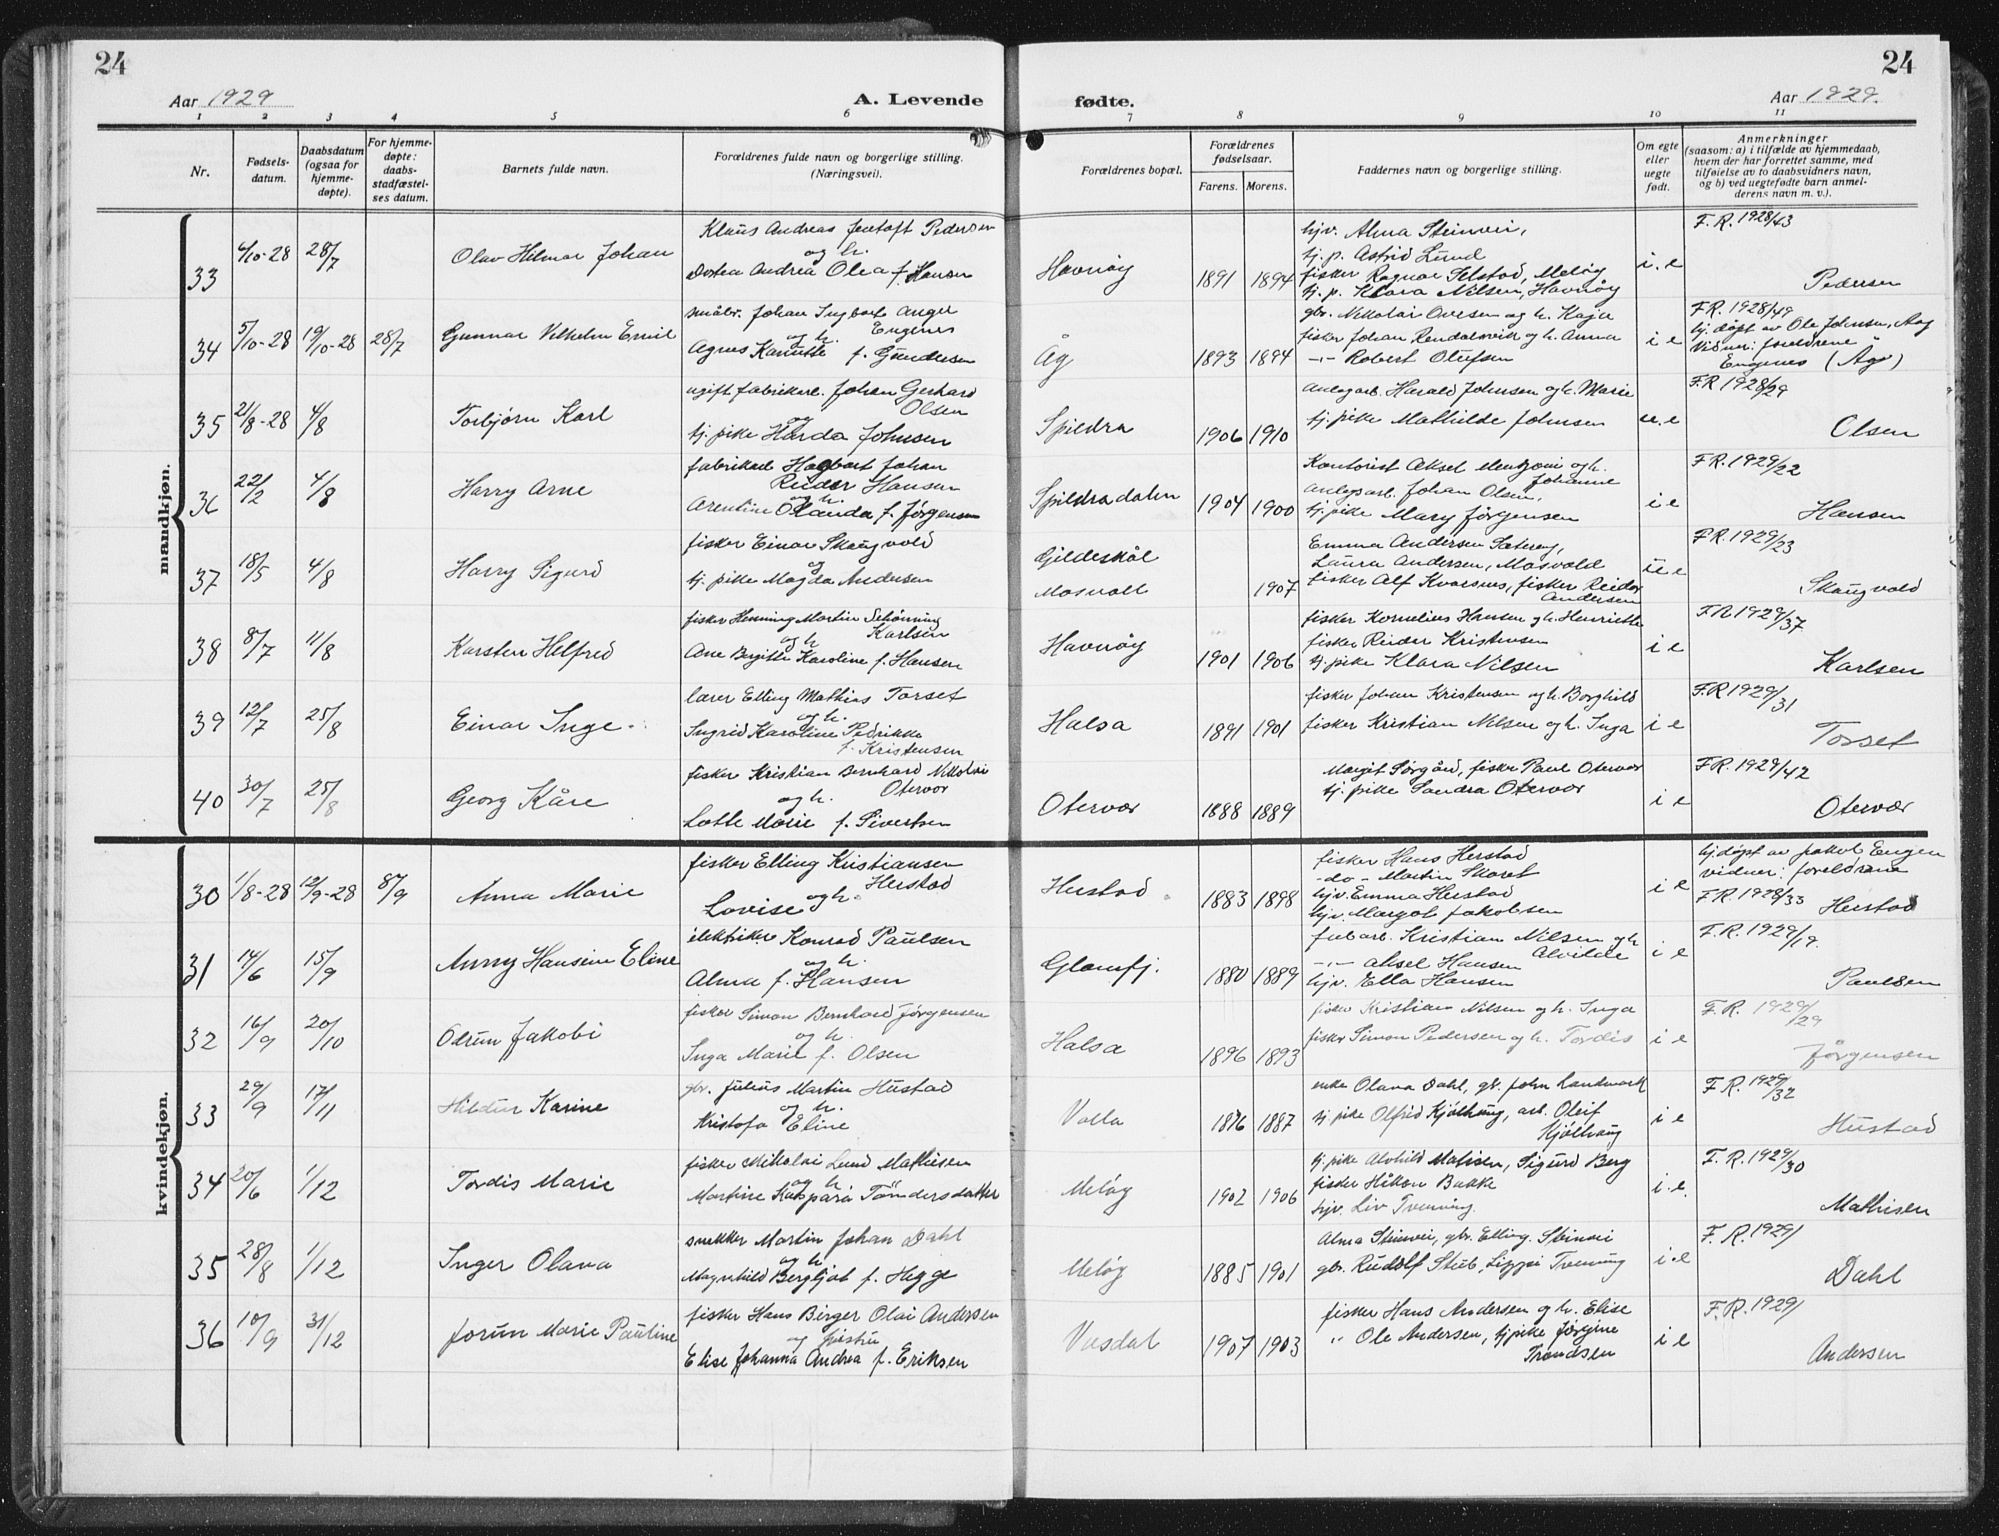 24
24
Aar 1929
A. Levende
fødte.
Aar 1929.
1 2 3 4 5 6 7 8 9 10 11
Nr.
Fødsels-
datum.
Daabsdatum
(ogsaa for
hjemme-
døpte).
For hjemme-
døpte:
daabs-
stadfæstel-
ses datum.
Barnets fulde navn.
Forældrenes fulde navn og borgerlige stilling.
(Næringsvei).
Forældrenes bopæl.
Forældrenes
fødselsaar.
Farens. Morens.
Faddernes navn og borgerlige stilling.
Om egte
eller
uegte
født.
Anmerkninger
(saasom: a) i tilfælde av hjemmedaab,
hvem der har forrettet samme, med
tilføielse av to daabsvidners navn,
og b) ved uegtefødte barn anmel-
derens navn m. v.).
mandkjøn.
33 4/10-28 28/7 Olav Hilmar Johan
Klaus Andreas Jentoft Pedersen
og h.
Dortea Andrea Olea f. Hansen
Havnöy 1891 1894
hjv. Alma Steinvei,
tj. p. Astrid Lund
fisker Ragnar Selstad, Melöy
tj. p. Klara Nilsen, Havnöy
i. e
F. R. 1928/43
Pedersen
34 5/10-28 19/10-28 28/7 Gunnar Vilhelm Emil
småbr. Johan Ingbart Anger
Engenes
og h.
Agnes Kanutte f. Gundersen
Åg 1893 1894
gbr. Nikolai Ovesen og h. Kaja
fisker Johan Rendalsvik og h. Anna
-"- Robert Olufsen
i e
F.R. 1928/49
hj. döpt av Ole Johnsen, Aag
Vidner: foreldrene
Engenes (Åg)
35 21/8-28 4/8 Torbjörn Karl
ugift fabrikarb. Johan Gerhard
Olsen
og
tj. pike Harda Johnsen
Spildra 1906 1910
anlegarb. Harald Johnsen og h. Marie
tj. pike Mathilde Johnsen
u. e
F.R 1928/29
Olsen
36 22/2 4/8 Harry Arne
fabrikarb Hagbart Johan
Reidar Hansen
og h.
Arentine Olanda f. Jörgensen
Spildradalen 1904 1900
Kontorist Aksel og h.
Johanne
anlegsarb. Johan Olsen,
tj. pike Mary Jörgensen
i e
F.R. 1929/22
Hansen
37 18/5 4/8 Harry Sigurd
fisker Einar Skaugvold
og
tj. pike Magda Andersen
Gjildeskål
Mosvoll 1907
Emma Andersen Sæteröy,
Laura Andersen, Mosvold
fisker Alf Kvarsnes, fisker Reidar
Andersen
u e
F.R. 1929/23
Skaugvold
38 8/7 11/8 Karsten Helfred
fisker Henning Martin Schönning
Karlsen
og h
Ane Bergitte Karoline f. Hansen
Havnöy 1901 1906
fisker Kornelius Hansen og h. Henriette
fisker Reidar Kristensen
tj. pike Klara Nilsen
i e
F.R. 1929/37
Karlsen
39 12/7 25/8 Einar Inge.
lærer Elling Mathias Torset
og h.
Ingrid Karoline Pedrikke
f. Kristensen
Halsa 1891 1901
fisker Johan Kristensen og h. Borghild
fisker Kristian Nilsen og h. Inga
i e
F.R 1929/31
Torset
40 30/7 25/8 Georg Kåre
fisker Kristian Bernhard Nikolai
Otervær
og h.
Lotte Marie f. Sivertsen
Otervær 1888 1889
Margit Sörgård, fisker Paul Otervær
tj. pike Sandra Otervær
i e
F.R. 1929/42
Otervær
kvindekjøn.
30 1/8-28 12/9-28 8/9 Anna Marie
fisker Elling Kristiansen
Herstad
og h.
Lovise
Herstad 1883 1898
fisker Hans Herstad
-do- Martin Skaret
hjv. Emma Herstad
hjv. Margot Jakobsen
i e
hj. döpt av Engen
vidner: foreldrene
F.R. 1928/33
Herstad
31 14/6 15/9 Anny Hansine Eline
elektriker Konrad Paulsen
og h.
Alma f. Hansen
Glomfj. 1880 1889
fabarb. Kristian Nilsen og h
Alvilde
-"- Aksel Hansen
hjv. Ella Hansen
i e
F.R. 1929/19.
Paulsen
32 16/9 20/10 Odrun Jakobi
fisker Simon Bernhard Jørgensen
og h.
Inga Marie f. Olsen
Halsa 1896 1893
fisker Kristian Nilsen og h. Inga
fisker Simon Pedersen og h. Tordis
i e
F.R. 1929/29
Jørgensen
33 29/9 17/11 Hildur Karine
gbr. Julius Martin Hustad
og h.
Kristofa Eline
Valla 1876 1887
enke Olava Dahl, gb. John Landmark
tj pike Olfrid Kjölhaug, arb. Oleif
Kjölhaug
i e
F.R. 1929/32
Hustad
34 20/6 1/12 Tordis Marie
fisker Nikolai Lund Mathisen
og h
Martine Kaspara Töndersdatter
Melöy 1902 1906
tj. pike Alvhild Matisen, Sigurd Berg
fisker Håkon Bakke
hjv. Liv Tverning.
i. e.
F.R. 1929/30
Mathisen
35 28/8 1/12 Inger Olava
snekker Martin Johan Dahl
og h
Magnhild Bergljot f. Hegge
Melöy 1885 1901
Alma Steinvei, gbr. Elling. Steinvei
gbr. Rudolf Stub, Lippi Tverning
i. e
F.R. 1929/
Dahl
36 10/9 31/12 Jorun Marie Pauline
fisker Hans Birger Olai Andersen
og hustru
Elise Johanna Andrea f. Eriksen
Vasdal 1907 1903
fisker Hans Andersen og h. Elise
" Ole Andersen, tj pike Jörgine
Trondsen
i e
F.R. 1929/
Andersen